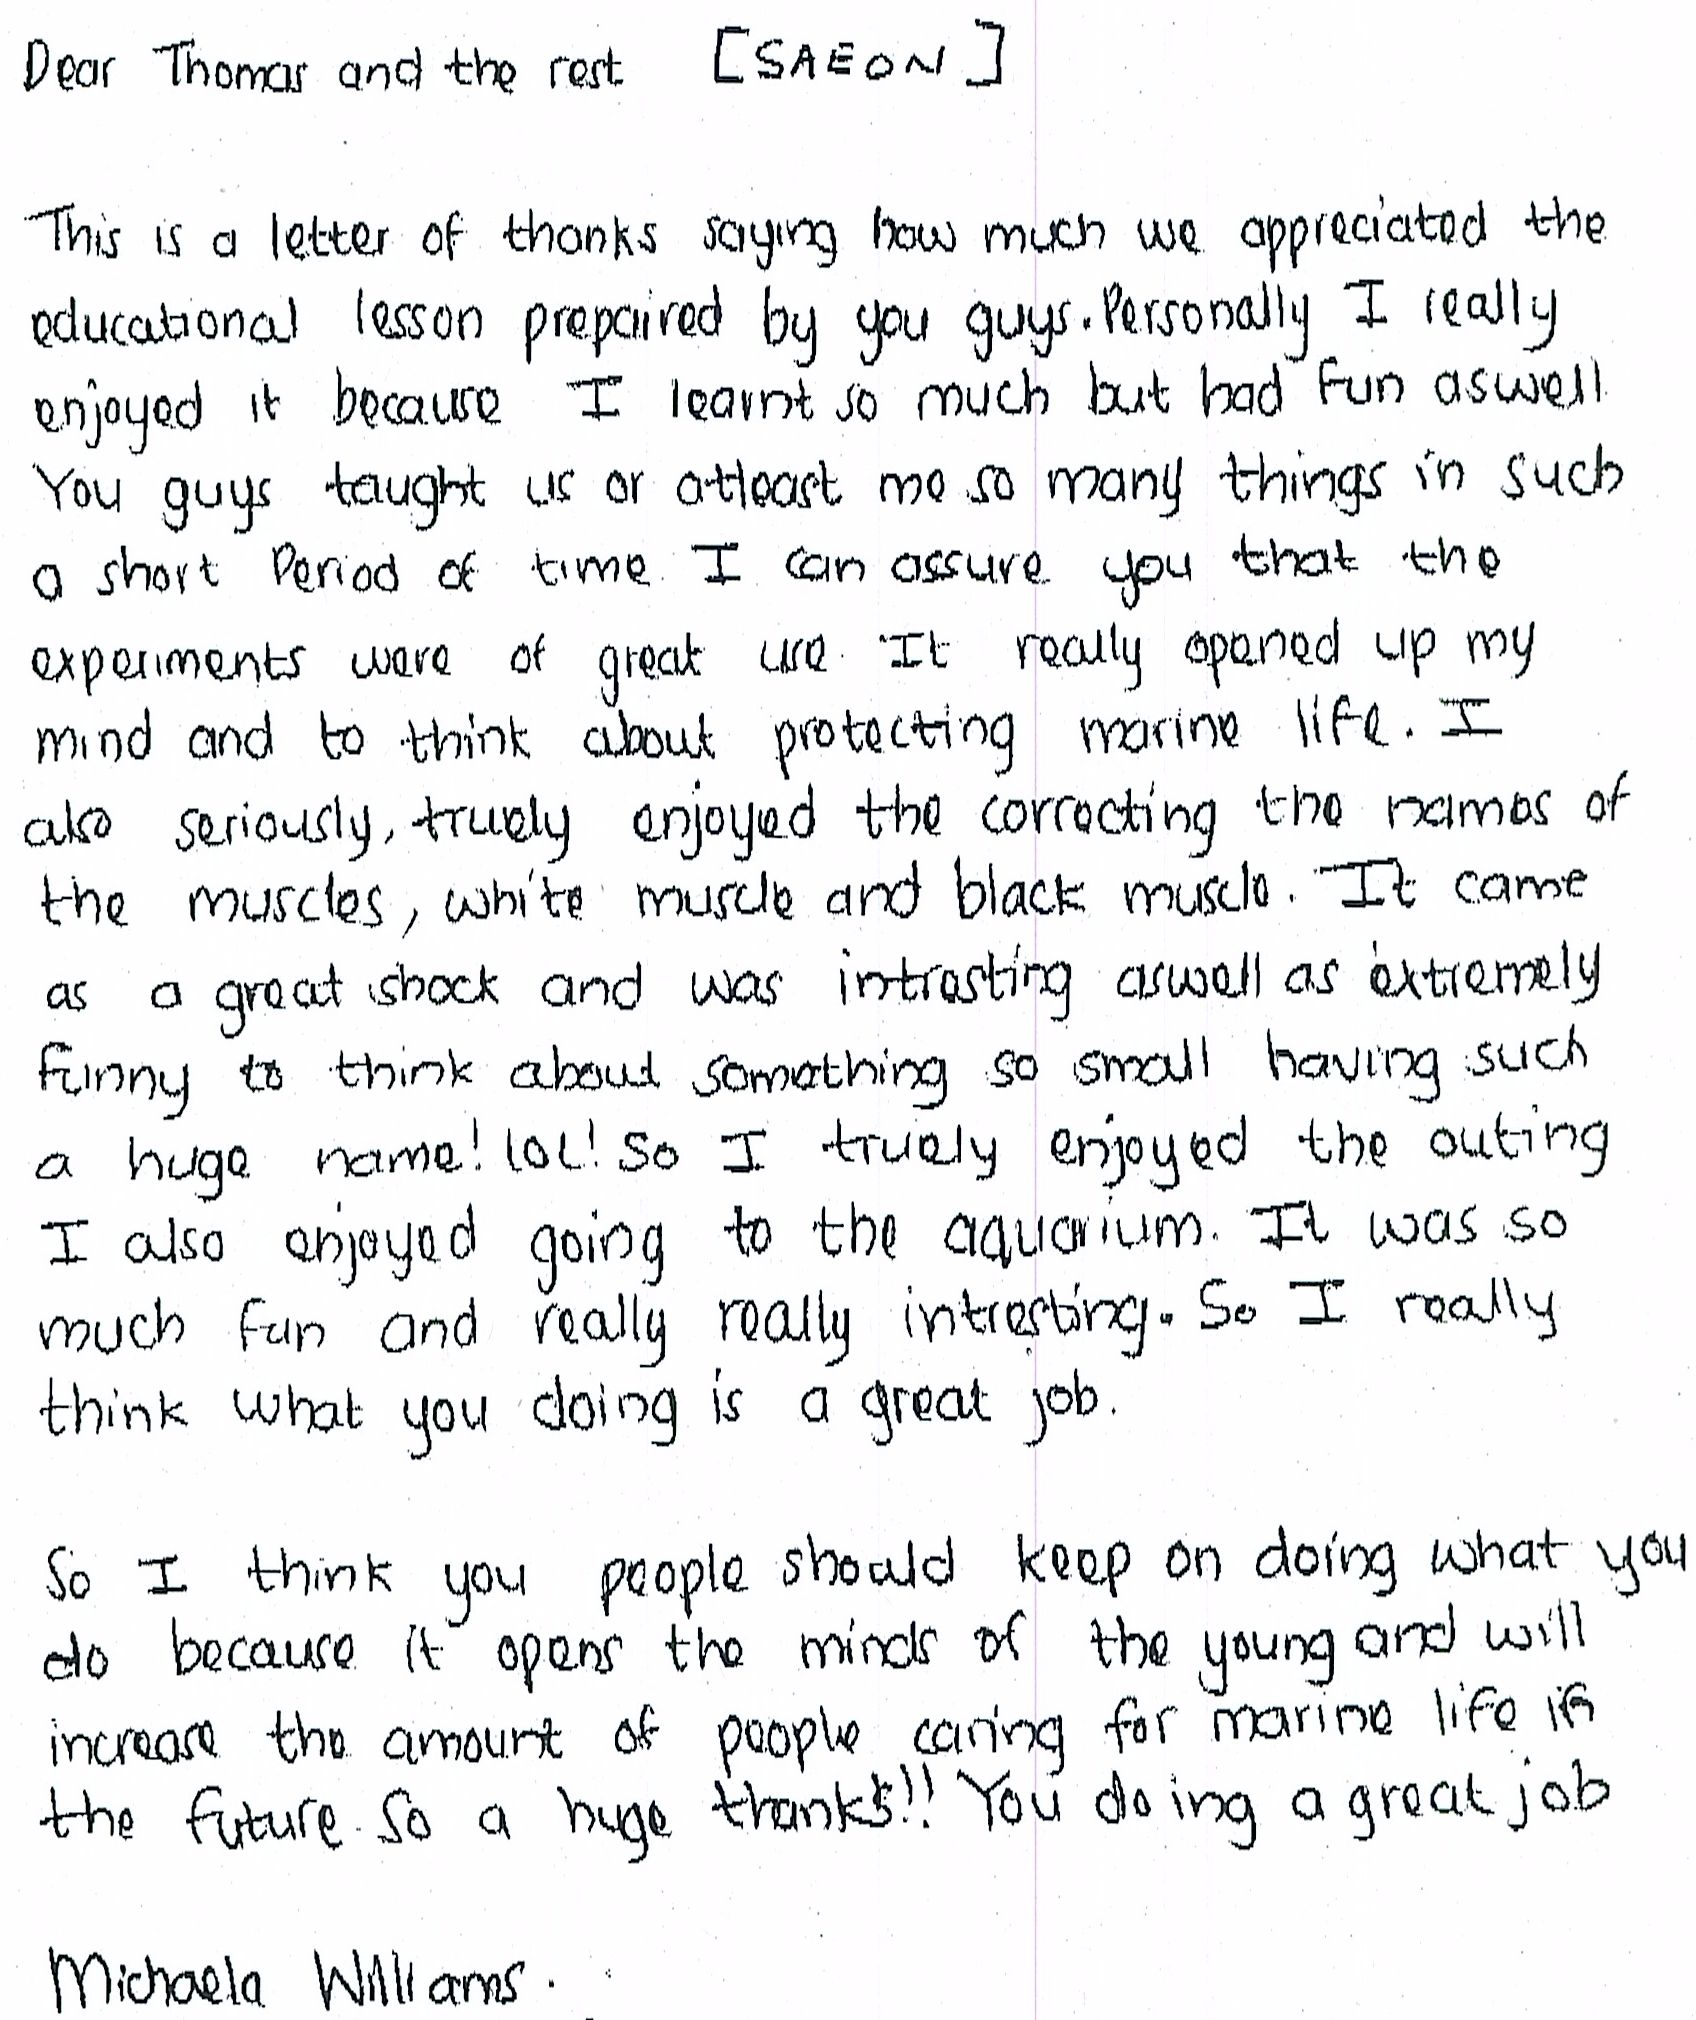 Dear Thomas and the rest [SAEON]
This is a letter of thanks saying how much we appreciated the
educational lesson prepaired by you guys. Personally I really
enjoyed it because I learnt so much but had fun aswell
You guys taught us or atleast me so many things in such
a short Period of time. I can assure you that the
experiments were of great use. It really opened up my
mind and to think about protecting marine life. I
also seriously, truely enjoyed the correcting the names of
the muscles, white muscle and black muscle. It came
as a great shock and was intresting aswell as extremely
funny to think about something so small having such
a huge name! lol! So I truely enjoyed the outing
I also enjoyed going to the aquarium. It was so
much fun and really really intresting. So I really
think what you doing is a great job.
So I think you people should keep on doing what you
do because it opens the minds of the young and will
increase the amount of people caring for marine life in
the future. So a huge thanks!! You doing a great job
Michaela Williams.